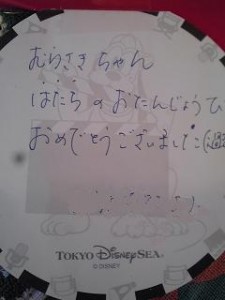 むらさきちゃん
はたちのおたんじょうび
おめでとうございました(過
TOKYO DISNEYSEA®
© DISNEY